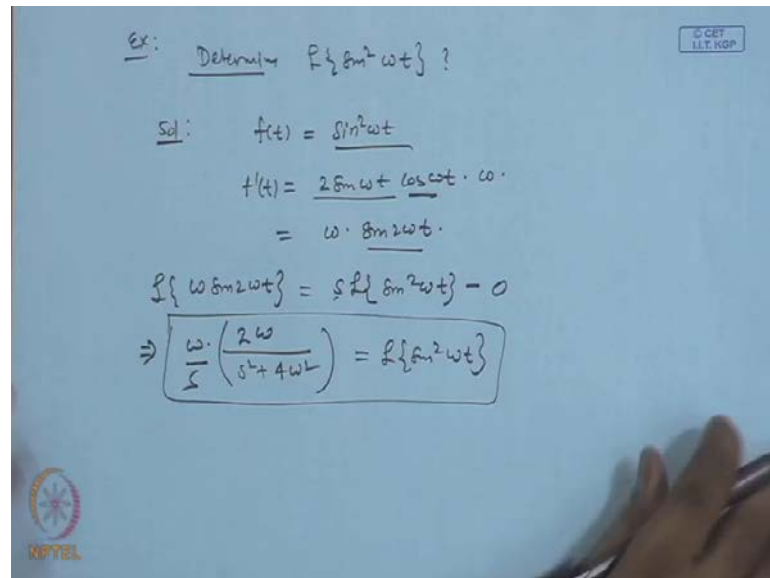 © CET
I.I.T. KGP
Ex: Determine L{sin² ωt} ?
Sol: f(t) = sin²ωt
f'(t) = 2 sin ωt cos ωt · ω ·
= ω · sin 2ωt ·
L{ω sin 2ωt} = s L{sin²ωt} - 0
⇒ ω/s · (2ω / (s² + 4ω²)) = L{sin²ωt}
NPTEL